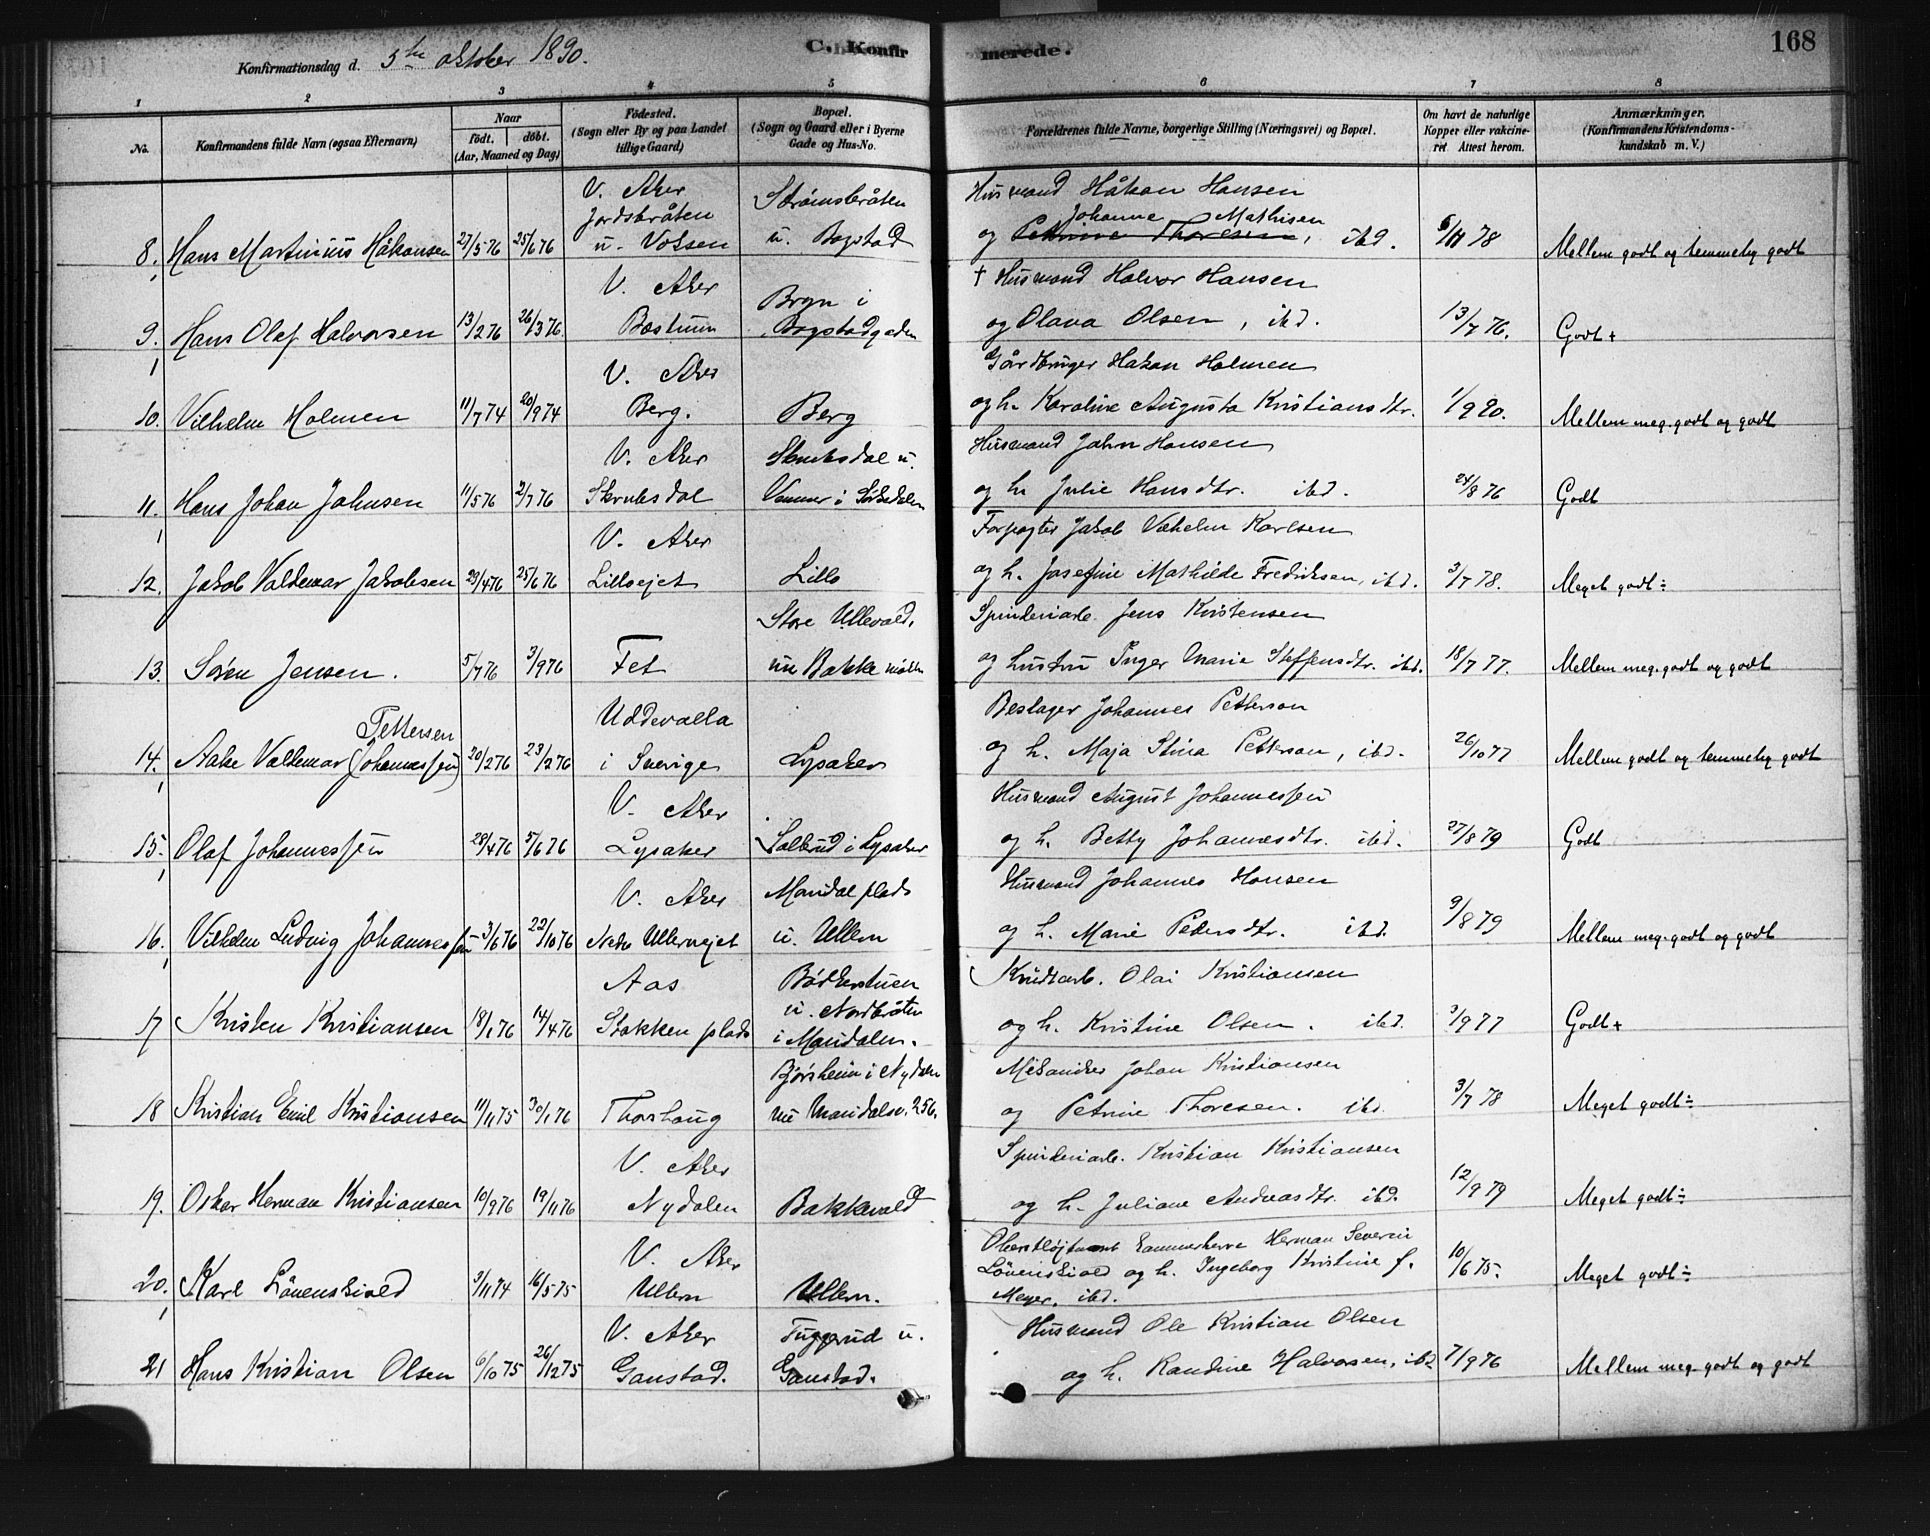 168
Konfirmationsdag d. 5te oktober 1890. C. Konfirmerede.
1 2 3 4 5 6 7 8
No. Konfirmandens fulde Navn (ogsaa Efternavn) Naar født. døbt. (Aar, Maaned og Dag) Fødested. (Sogn eller By og paa Landet tillige Gaard) Bopæl. (Sogn og Gaard eller i Byerne Gade og Hus-No. Forældrenes fulde Navne, borgerlige Stilling (Næringsvei) og Bopæl. Om havt de naturlige Kopper eller vakcineret Attest herom. Anmærkninger. (Konfirmandens Kristendomskundskab m. V.)
V. Aker Strømsbråten Husmand Håkan Hansen
Jordsbråten Johanne Mathisen
8. Hans Martinius Håkansen 27/5 76 25/6 76 u. Voksen u. Bogstad og Petrine Thoresen, ibd. 78 Mellem godt og temmelig godt
V. Aker Bryn i † Husmand Halvor Hansen
9. Hans Olaf Halvorsen 13/2 76 26/3 76. Bogstadgaden og Olava Olsen, ibd. 13/7 76. Godt +
V. Aker Gårdbruger Hakan Holmen
10. Vilhelm Holmen 11/7 74 20/9 74 Berg. Berg og h. Karoline Augusta Kristiansdtr. 1/9 90. Mellem meg. godt og godt
V. Aker Skrubsdal u. Husmand John Hansen
11. Hans Johan Johnsen 11/5 76 2/7 76 Skrubsdal i Sørkedalen og h. Julie Hansdtr. ibd. 24/8 76 Godt
V. Aker Forpagter Jakob Vilhelm Karlsen
12. Jakob Valdemar Jakobsen 29/4 76 25/6 76 Lilloejet Lillo og h. Josefine Mathilde Fredriksen, ibd. 3/7 78. Meget godt ÷
Store Ullevold, Spinderiarb. Jens Kristensen
13. Søren Jensen. 5/7 76 3/9 76 Fet nu Bakke mølle og hustru Inger Marie Steffensdtr. ibd. 18/7 77. Mellem meg. godt og godt
Pettersen Uddevalla Beslager Johannes Petterson
14. Aake Valdemar (Johannessen) 20/2 76 23/2 76 i Sverige Lysaker og h. Maja Stina Petterson, ibd. 26/10 77 Mellem godt og temmelig godt
V. Aker Husmand August Johannessen
15. Olaf Johannessen 28/4 76 5/6 76 Lysaker Solbrud i Lysaker og h. Betty Johannesdtr. ibd. 27/8 79 Godt
V. Aker Mandal plads Husmand Johannes Hansen
16. Vilhelm Ludvig Johannessen 3/6 76 22/10 76 Nedr. Ullernejet u. Ullern og h. Marie Pedersdtr. ibd. 9/8 79 Mellem meg. godt og godt
Aas Bødkerstuen Krudtarb. Olai Kristiansen
u. Nordbråten
17 Kristen Kristiansen 18/1 76 14/4 76 Stokken plads i Maridalen. og h. Kristine Olsen. ibd. 3/9 77 Godt +
Bjørsheim i Nydalen Mekaniker Johan Kristiansen
18 Kristian Emil Kristiansen 11/11 75 30/1 76 Thorshaug nu Maridalsv. 256. og Petrine Thoresen. ibd. 3/7 78 Meget godt ÷
V. Aker Spinderiarb. Kristian Kristiansen
19. Oskar Herman Kristiansen 10/9 76 19/11 76 Nydalen Bakkevold og h. Juliane Andreasdtr. ibd. 12/9 79 Meget godt ÷
V. Aker Oberstløjtnant kammerherre Herman Severin
20. Karl Løvenskiold 3/11 74 16/5 75 Ullern Ullern. Løvenskiold og h. Ingeborg Kristine f. 10/6 75. Meget godt ÷
Meyer, ibd.
V. Aker Tuggerud u. Husmand Ole Kristian Olsen
21 Hans Kristian Olsen 6/10 75 26/12 75 Gaustad. Gaustad. og h. Randine Halvorsen, ibd 7/9 76 Mellem meg. godt og godt